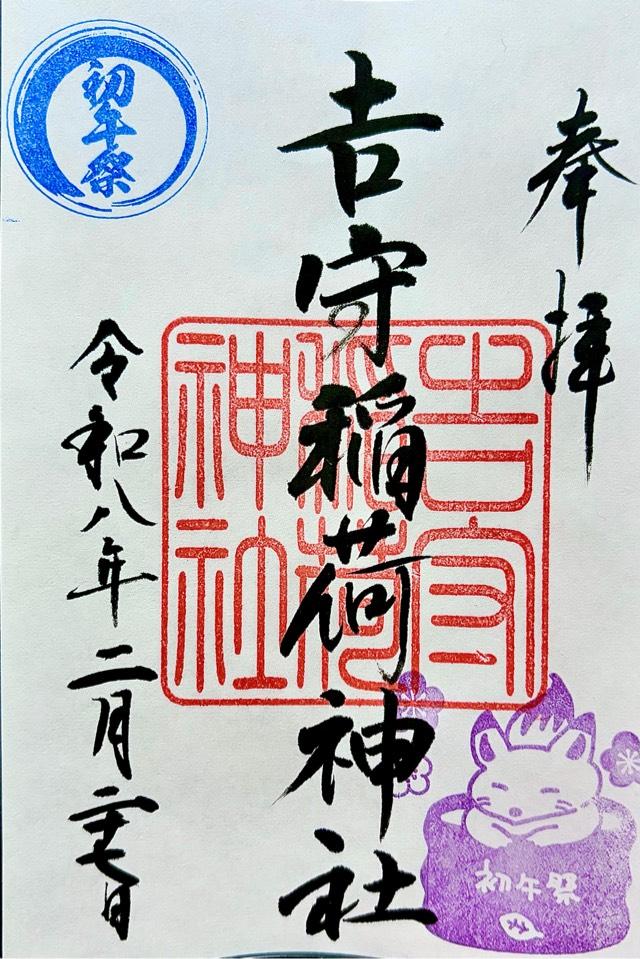 奉拝
吉守稲荷神社
吉守稲荷神社
令和八年二月二十七日
初午祭
初午祭